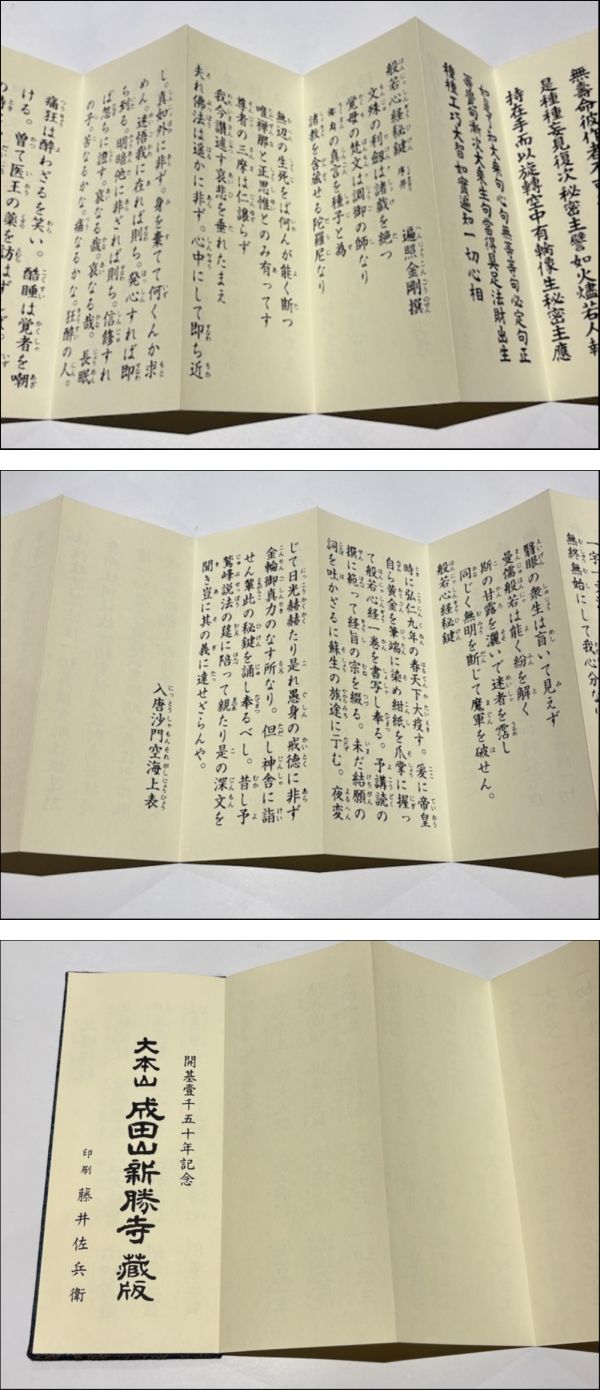 無壽命彼作者不可
是種種妄見復次秘密主譬如火燼若人執
持在手而以旋轉空中有輪像生秘密主應
如是了知大乘句心句無等等句必定句正
等覺句漸次大乘生句當得具足法財出生
種種工巧大智如實遍知一切心相
般若心経秘鍵 序并
遍照金剛撰
文殊の利剣は諸戯を絶つ
覚母の梵文は調御の師なり
真言を種子と為
諸教を含蔵せる陀羅尼なり
無辺の生死をば何んが能く断つ
唯禅那と正思惟とのみ有ってす
尊者の三摩は仁譲らず
我今讃述す哀悲を垂れたまえ
夫れ佛法は遥かに非ず。心中にして即ち近
し。真如外に非ず。身を棄てて何くんか求
めん。迷悟我に在れば則ち。発心すれば即
ち到る。明暗他に非ざれば則ち。信修すれ
ば忽ちに證す。哀なる哉。哀なる哉。長眠
の子。苦なるかな。痛なるかな。狂酔の人。
痛狂は酔わざるを笑い。酷睡は覚者を嘲
ける。曽て医王の薬を訪はずんば。
無終無始にして我心分な
翳眼の衆生は盲いて見えず
曼儒般若は能く紛を解く
斯の甘露を灑いで迷者を霑し
同じく無明を断じて魔軍を破せん。
般若心経秘鍵
時に弘仁九年の春天下大疫す。爰に帝皇
自ら黄金を筆端に染め紺紙を爪掌に握っ
て般若心経一巻を書写し奉る。予講読の
撰に範って経旨の宗を綴る。未だ結願の
詞を吐かざるに蘇生の族途に亍む。夜変
じて日光赫赫たり是れ愚身の戒徳に非ず
金輪御真力のなす所なり。但し神舎に詣
せん輩此の秘鍵を誦し奉るべし。昔し予
鷲峰説法の莚に陪って親たり是の深文を
聞き豈に其の義に達せざらんや。
入唐沙門空海上表
開基壹千五十年記念
大本山 成田山新勝寺 藏版
印刷 藤井佐兵衛